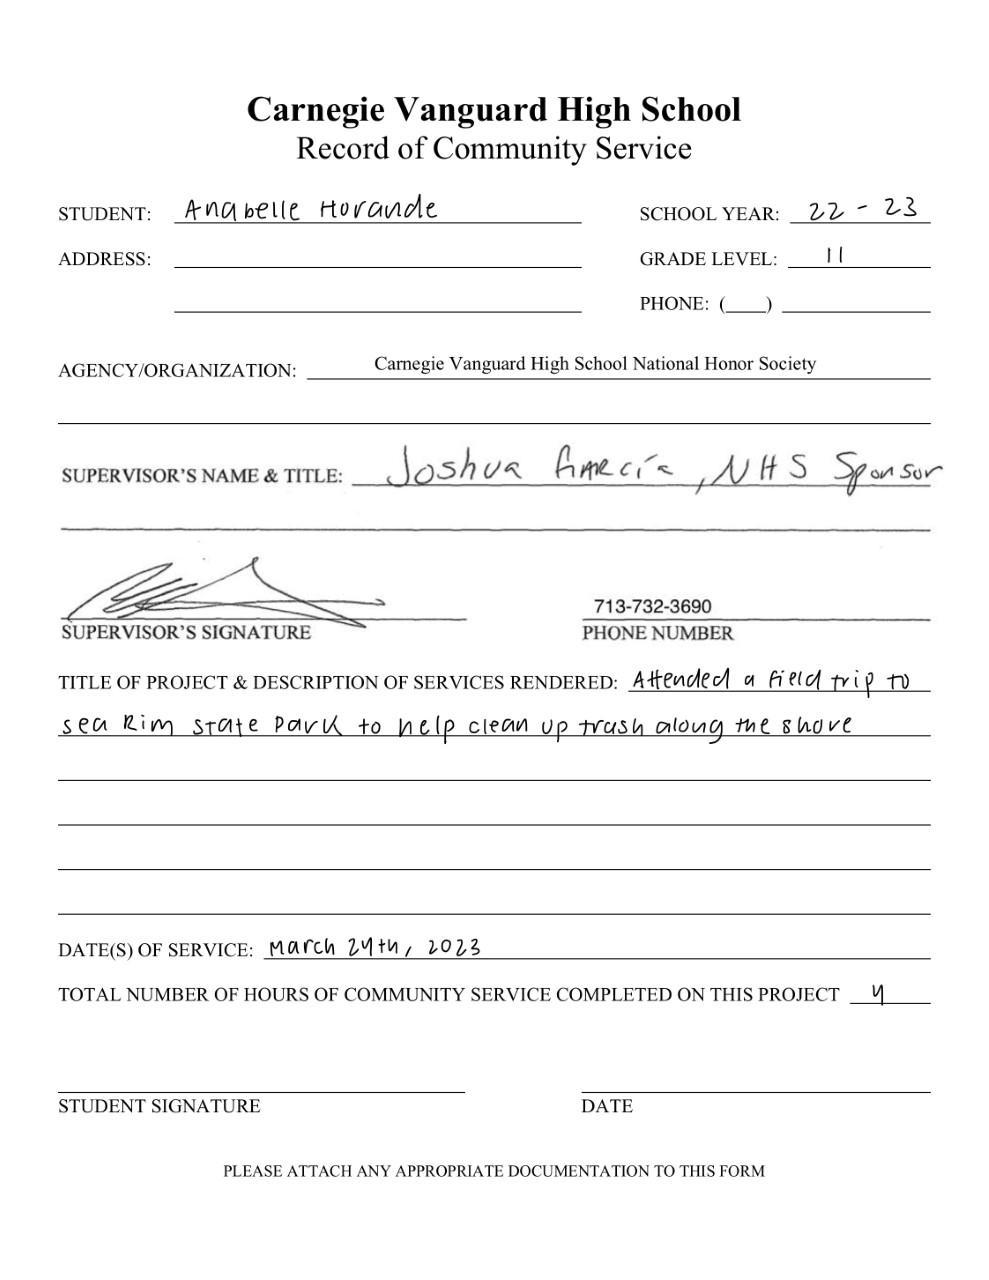 Carnegie Vanguard High School
Record of Community Service
STUDENT: Anabelle Horande SCHOOL YEAR: 22 - 23
ADDRESS: GRADE LEVEL: 11
PHONE: (____)
AGENCY/ORGANIZATION: Carnegie Vanguard High School National Honor Society
SUPERVISOR'S NAME & TITLE: Joshua García, NHS Sponsor
713-732-3690
SUPERVISOR'S SIGNATURE PHONE NUMBER
TITLE OF PROJECT & DESCRIPTION OF SERVICES RENDERED: Attended a field trip to
sea Rim state Park to help clean up trash along the shore
DATE(S) OF SERVICE: March 24th, 2023
TOTAL NUMBER OF HOURS OF COMMUNITY SERVICE COMPLETED ON THIS PROJECT 4
STUDENT SIGNATURE DATE
PLEASE ATTACH ANY APPROPRIATE DOCUMENTATION TO THIS FORM